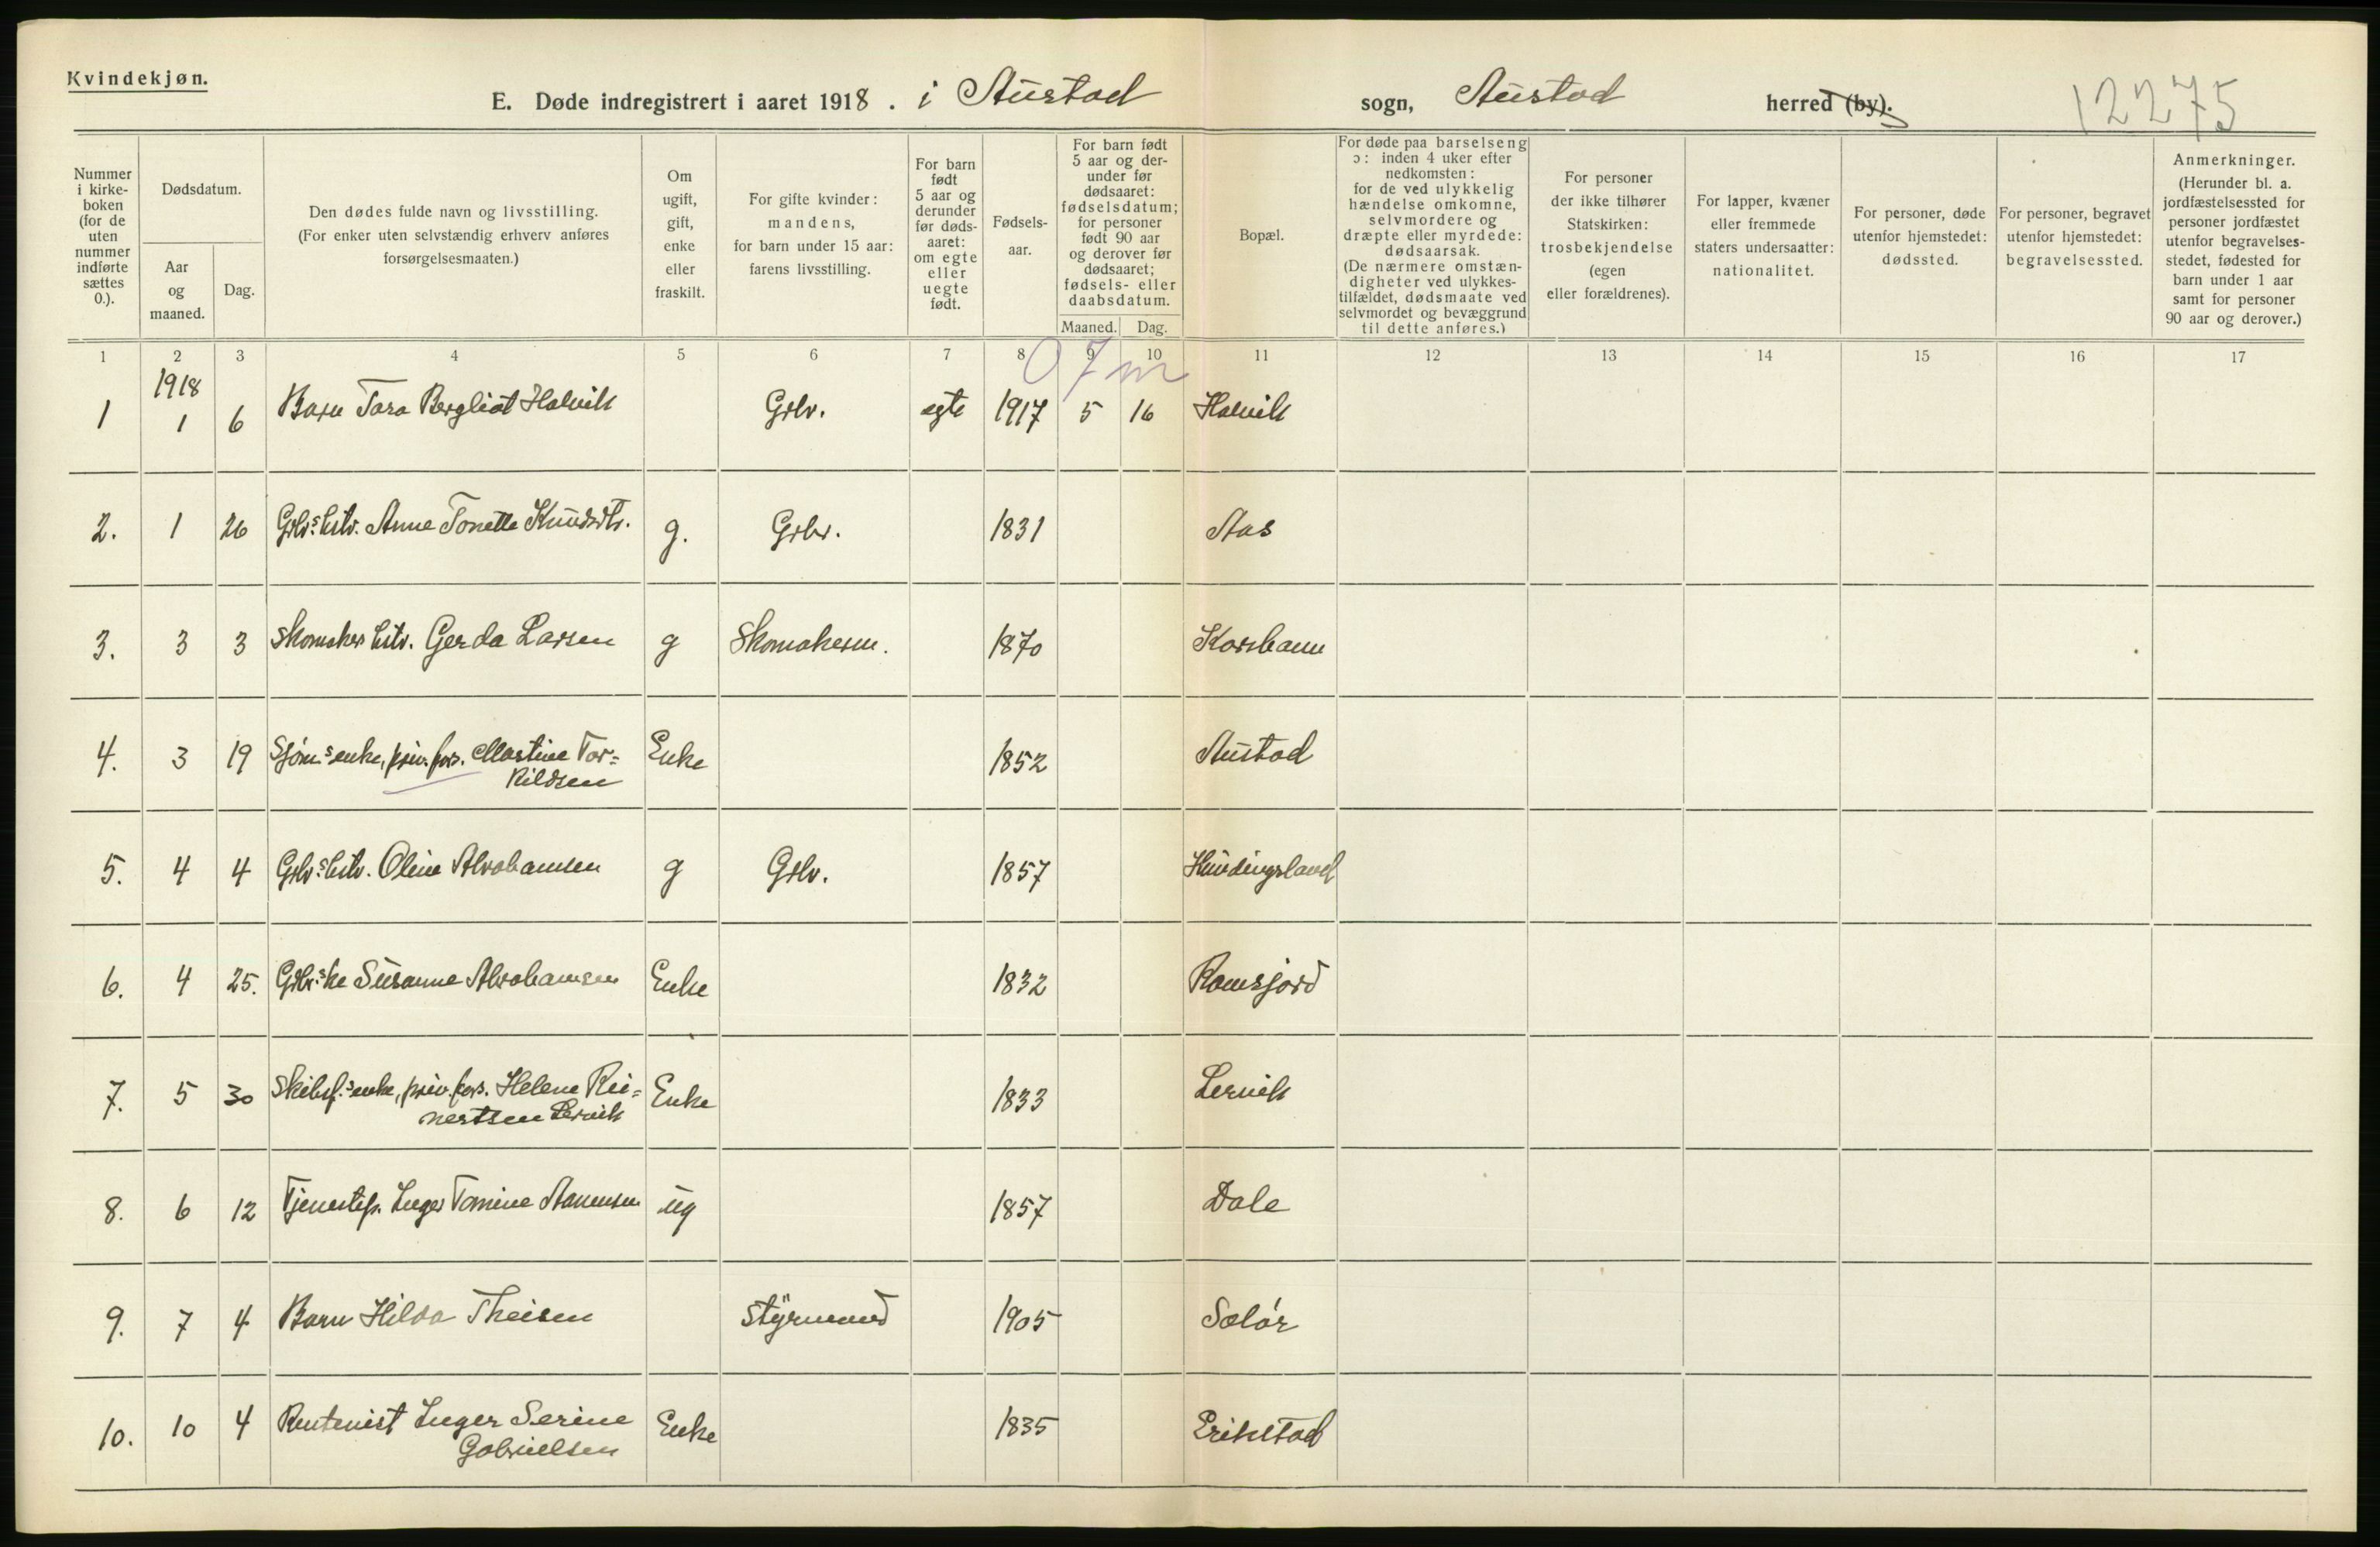 Kvindekjøn.
E. Døde indregistrert i aaret 1918. i Austad sogn, Austad herred (by).
12275
Nummer i kirkeboken (for de uten nummer indførte sættes 0.).
Dødsdatum.
Aar og maaned.
Dag.
Den dødes fulde navn og livsstilling.
(For enker uten selvstændig erhverv anføres
forsørgelsesmaaten.)
Om ugift, gift, enke eller fraskilt.
For gifte kvinder: mandens, for barn under 15 aar: farens livsstilling.
For barn født 5 aar og derunder før dødsaaret: om egte eller uegte født.
Fødselsaar.
For barn født 5 aar og derunder før dødsaaret: fødselsdatum; for personer født 90 aar og derover før dødsaaret; fødsels- eller daabsdatum.
Maaned. Dag.
Bopæl.
For døde paa barselseng ɔ: inden 4 uker efter nedkomsten: for de ved ulykkelig hændelse omkomne, selvmordere og dræpte eller myrdede: dødsaarsak. (De nærmere omstændigheter ved ulykkestilfældet, dødsmaate ved selvmordet og bevæggrund til dette anføres.)
For personer der ikke tilhører Statskirken: trosbekjendelse (egen eller forældrenes).
For lapper, kvæner eller fremmede staters undersaatter: nationalitet.
For personer, døde utenfor hjemstedet: dødssted.
For personer, begravet utenfor hjemstedet: begravelsessted.
Anmerkninger. (Herunder bl. a. jordfæstelsessted for personer jordfæstet utenfor begravelsesstedet, fødested for barn under 1 aar samt for personer 90 aar og derover.)
1 2 3 4 5 6 7 8 9 10 11 12 13 14 15 16 17
0 7 m
1918
1 1 6 Barn Tora Bergliot Halvik Grbr. egte 1917 5 16 Halvik
2. 1 26 Grbr.s hstr. Anne Tonette Knudsdtr. g. Grbr. 1831 Aas
3. 3 3 Skomaker hstr. Gerda Larsen g Skomakerm. 1870 Korshamn
4. 3 19 Sjøm.s enke, priv. fors. Martine Tor=
kildsen Enke 1852 Austad
5. 4 4 Grbr.s hstr. Oline Abrahamsen g Grbr. 1857 Hundingsland
6. 4 25. Grbr.s ke Susanne Abrahamsen Enke 1832 Ramsjord
7. 5 30 Skibsf.s enke, priv. fors. Helene Rei=
nertsen Lervik Enke 1833 Lervik
8. 6 12 Tjenestep. Inger Tomine Aanensen ug 1857 Dale
9. 7 4 Barn Hilda Theisen Styrmand 1905 Solör
10. 10 4 Rentenist Inger Serine
Gabrielsen Enke 1835 Erikstad